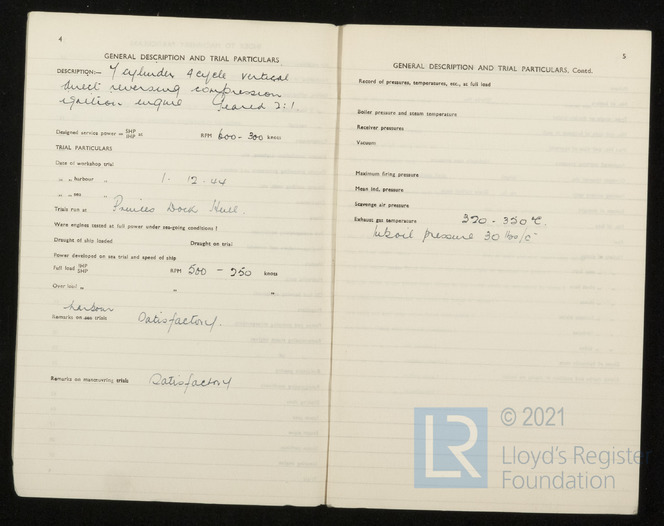 4
GENERAL DESCRIPTION AND TRIAL PARTICULARS
DESCRIPTION:— 7 cylinder 4 cycle vertical
direct reversing compression
ignition engine Geared 2:1
Designed service power = SHP IHP at RPM 600 - 300 knots
TRIAL PARTICULARS
Date of workshop trial
„ „ harbour „ 1. 12. 44
„ „ sea „
Trials run at Princes Dock Hull.
Were engines tested at full power under sea-going conditions?
Draught of ship loaded Draught on trial
Power developed on sea trial and speed of ship
Full load IHP SHP RPM 500 - 250 knots
Over load „ „ „
harbour
Remarks on sea trials Satisfactory.
Remarks on manœuvring trials Satisfactory
5
GENERAL DESCRIPTION AND TRIAL PARTICULARS, Contd.
Record of pressures, temperatures, etc., at full load
Boiler pressure and steam temperature
Receiver pressures
Vacuum
Maximum firing pressure
Mean ind. pressure
Scavenge air pressure
Exhaust gas temperature 320 - 350 °C.
luboil pressure 30 lbs/□"
LR
© 2021
Lloyd's Register
Foundation